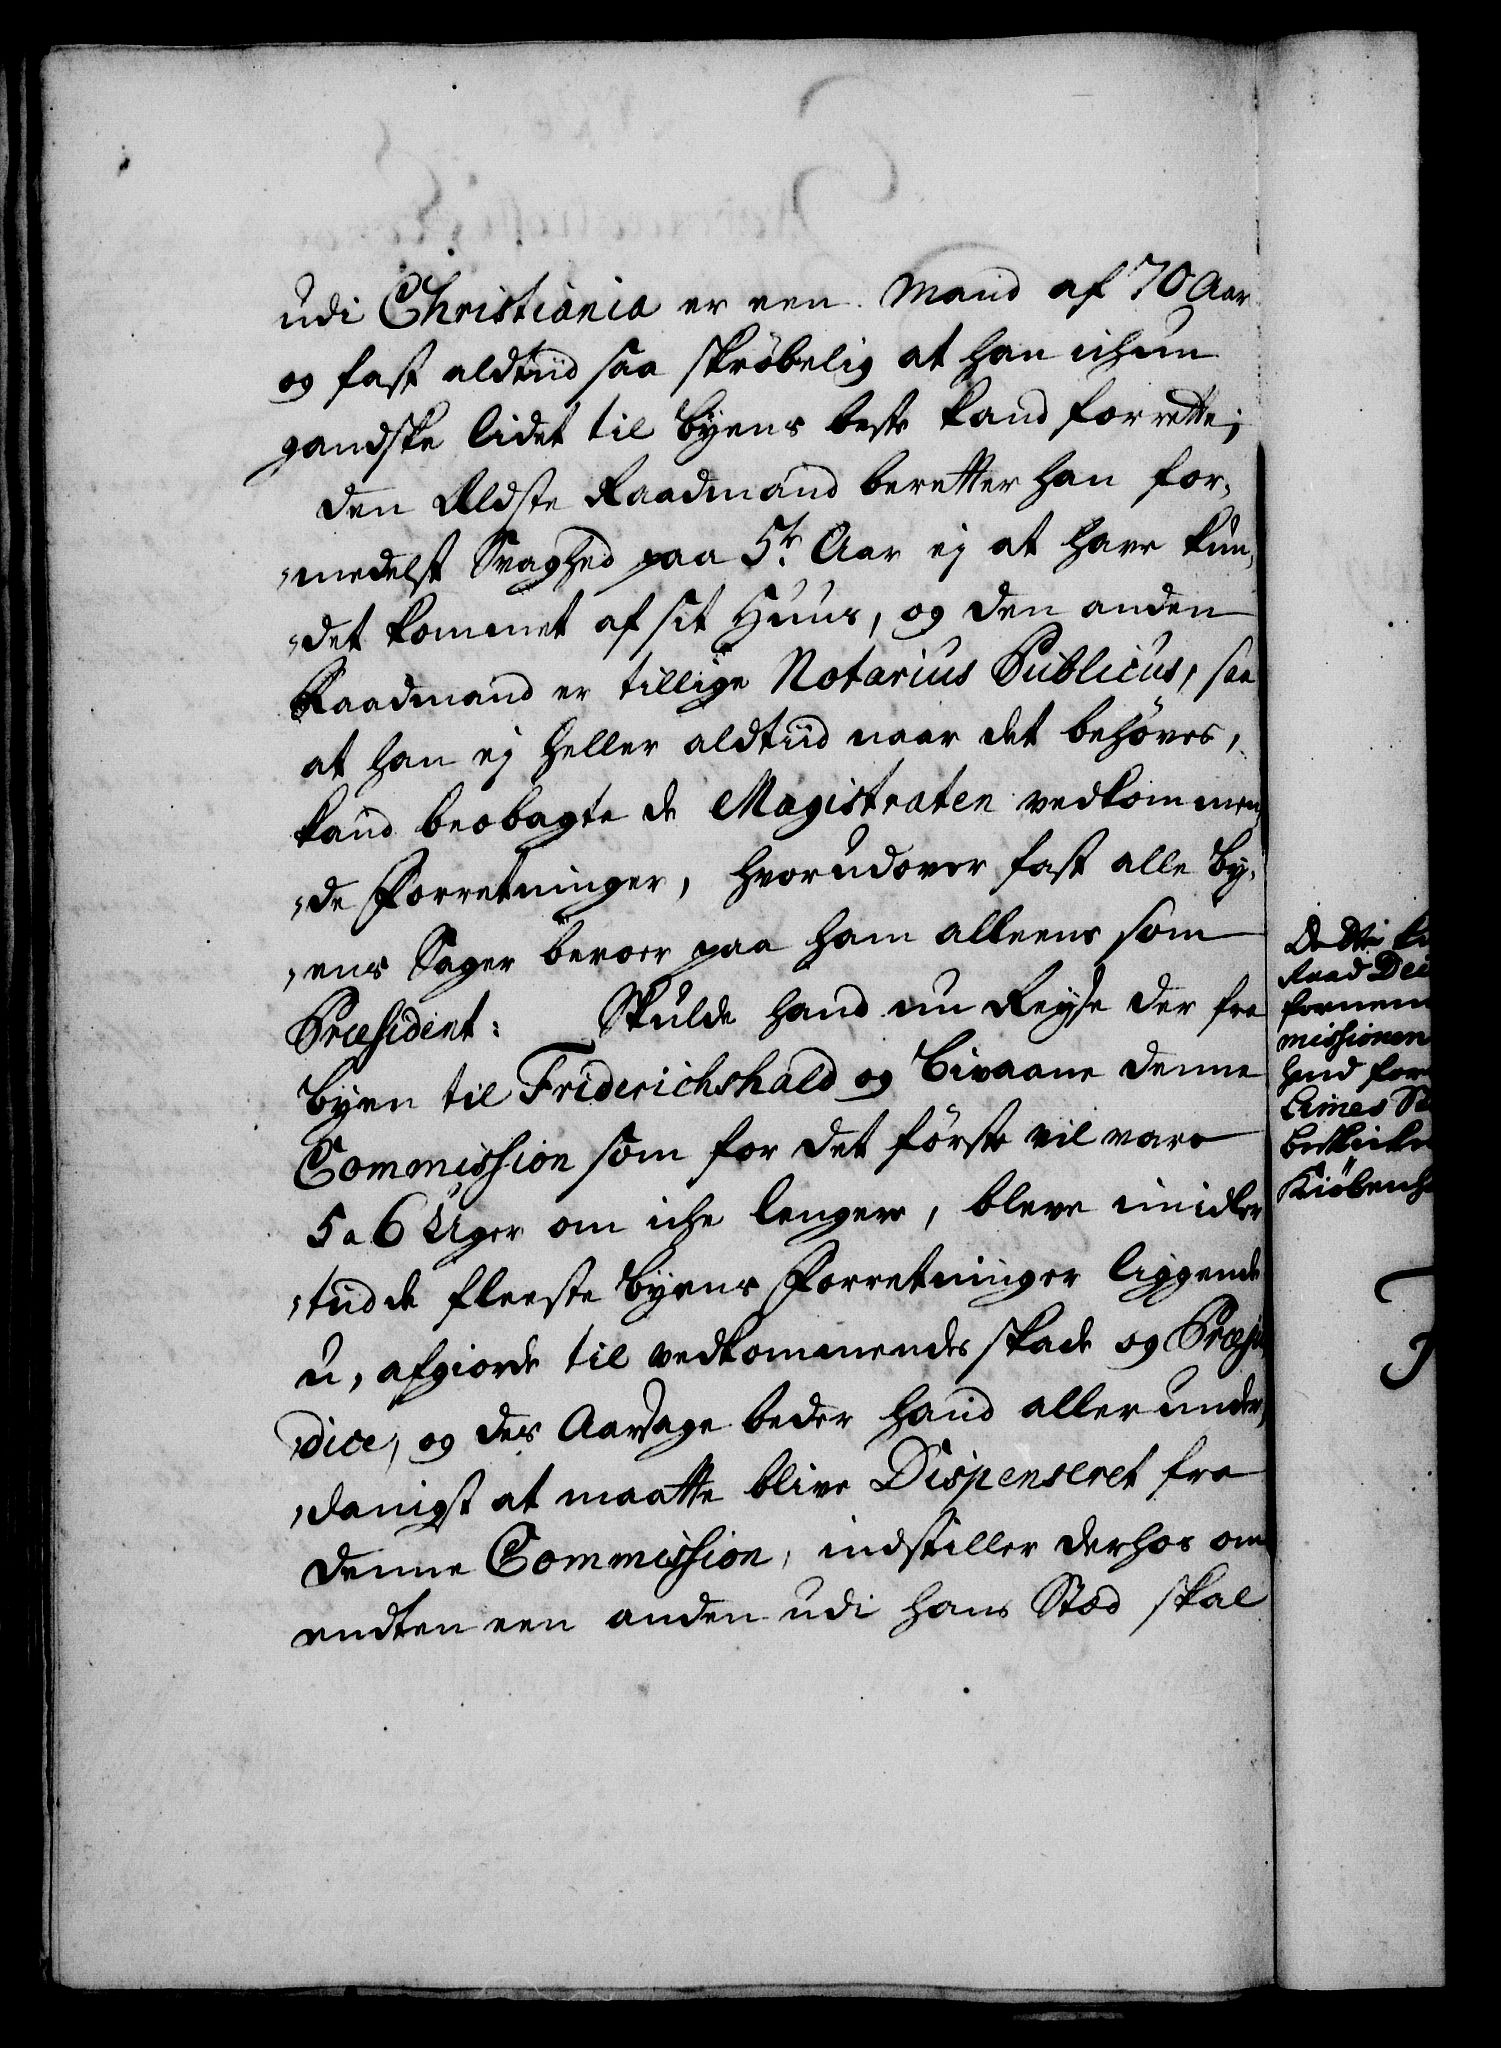 udi Christiania er een Mand af 70 Aar
og fast aldtiid saa skröbelig at han ichun
gandske lidet til Byens beste kand forrette;
den Ældste Raadmand beretter han for,
,medelst Svaghed paa 5 Aar ej at have kun,
,det kommet af sit Huus, og den anden
Raadmand er tillige Notarius Publicus, saa
at han ej heller aldtiid naar det behöves,
kand beobagte de Magistraten vedkommen,
,de Forretninger, hvorudover fast alle By,
,ens Sager beroer paa ham alleene som
Præsident: Skulde hand nu Reyse der fra
Byen til Friderichshald og bivaane denne
Commission som for det förste vil vare
5 a 6 Uger om iche lengere, bleve imidler
,tiid de fleeste Byens Forretninger liggende
u, afgiorde til vedkommendes skade og Præju,
,dice, og des Aarsage beder hand allerunder,
,danigst at maatte blive Dispenseret fra
denne Commission, indstiller derhos om
endten een anden udi hans Stæd skal
Raad
missionen
hand for
Kiöbenh